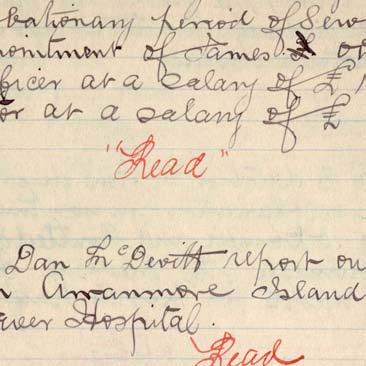 bationary period of
ointment of James
ficer at a salary of £
at a salary of £
"Read"
Dan McDevitt report on
n Arranmore Island
ever Hospital.
Read